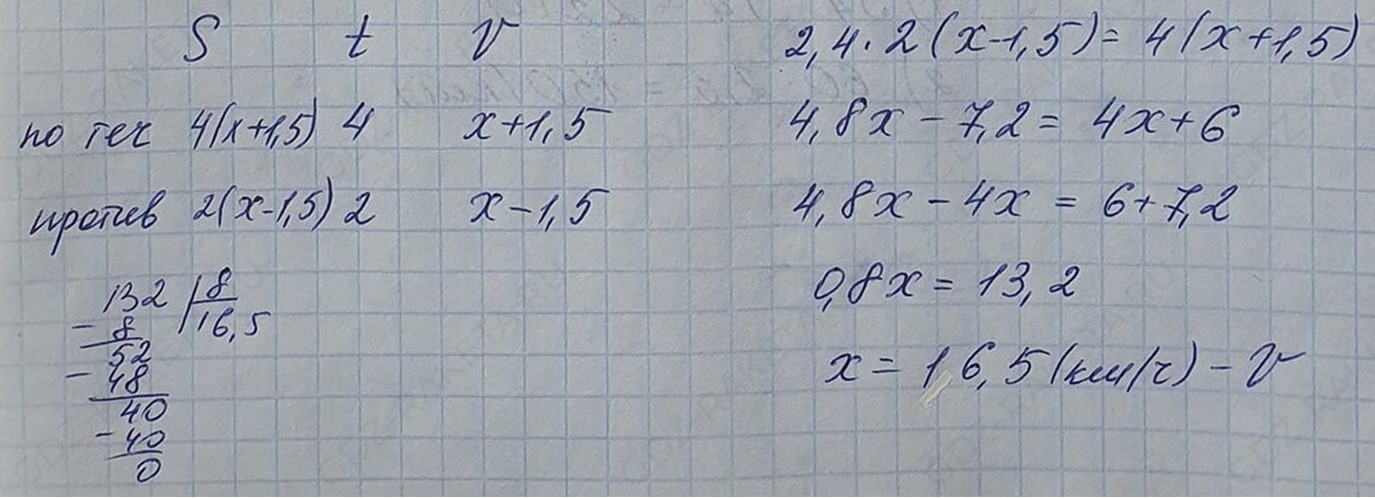 S t V
по теч 4(x+1,5) 4 x+1,5
против 2(x-1,5) 2 x-1,5
132 | 8
- 8 16,5
52
- 48
40
- 40
0
2,4·2(x-1,5)=4(x+1,5)
4,8x-7,2=4x+6
4,8x-4x=6+7,2
0,8x=13,2
x=16,5(км/ч)-V